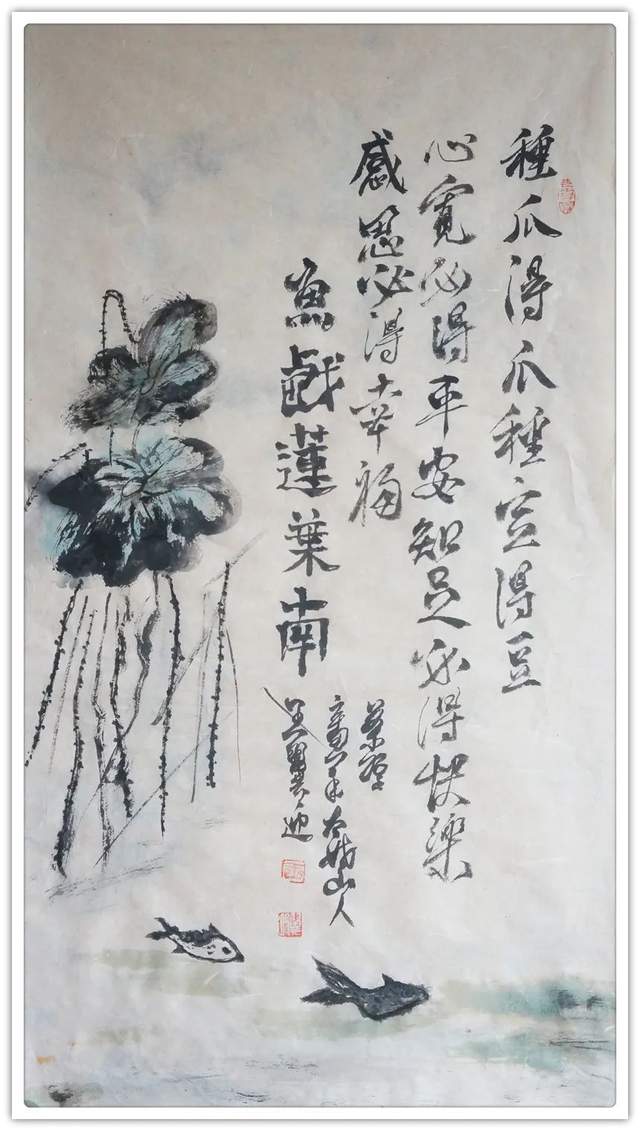 種瓜得瓜種豆得豆
心寬必得平安知足必得快樂
感恩必得幸福
魚戲蓮葉南
山人